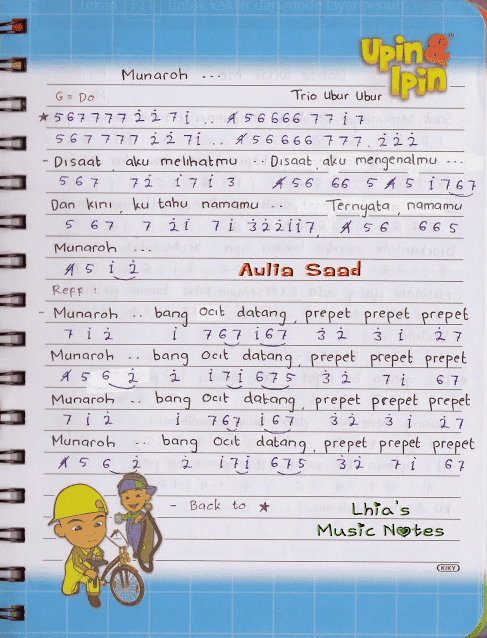 Tekan F11 untuk keluar dari mode layar penuh
Upin &
Ipin
Munaroh ...
G = Do
Trio Ubur Ubur
★ 5 6 7 7 7 7 2̇ 2̇ 7 1̇ .. 4̸ 5 6 6 6 6 7 7 1̇ 7
5 6 7 7 7 7 2̇ 2̇ 7 1̇ .. 4̸ 5 6 6 6 6 7 7 7 . 2̇ 2̇ 2̇
- Disaat, aku melihatmu ... Disaat, aku mengenalmu ...
5 6 7 7 2̇ 1̇ 7 1̇ 3 4̸ 5 6 6 6 5 4̸ 5 1̇ 7 6 7
Dan kini, ku tahu namamu ... Ternyata, namamu
5 6 7 7 2̇ 1̇ 7 1̇ 3̇ 2̇ 2̇ 1̇ 1̇ 7, 4̸ 5 6 6 6 5
Munaroh ...
4̸ 5 1̇ 2̇
Aulia Saad
Reff :
- Munaroh .. bang Ocit datang, prepet prepet prepet
7 1̇ 2̇ 1̇ 7 6 7 1̇ 6 7 3̇ 2̇ 3̇ 1̇ 2̇ 7
Munaroh .. bang Ocit datang, prepet prepet prepet
4̸ 5 6 2̇ 2̇ 1̇ 7 1̇ 6 7 5 3̇ 2̇ 7 1̇ 6 7
Munaroh .. bang Ocit datang, prepet prepet prepet
7 1̇ 2̇ 1̇ 7 6 7 1̇ 6 7 3̇ 2̇ 3̇ 1̇ 2̇ 7
Munaroh .. bang Ocit datang, prepet prepet prepet
4̸ 5 6 2̇ 2̇ 1̇ 7 1̇ 6 7 5 3̇ 2̇ 7 1̇ 6 7
- Back to ★
Lhia's
Music Notes
KIKY